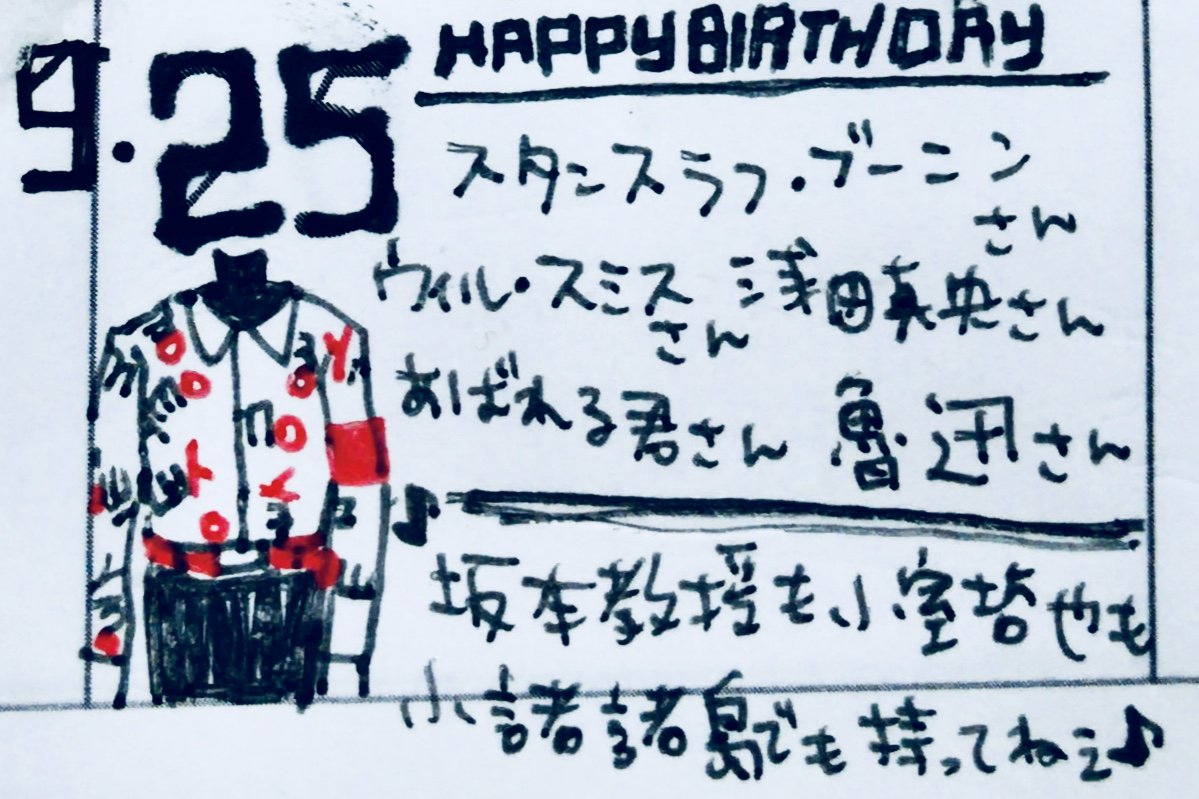 9.25
HAPPYBIRTHDAY
スタニスラフ・ブーニン
さん
ウィル・スミス
さん
浅田真央さん
あばれる君さん 魯迅さん
♪
坂本教授も小室哲也も
小諸諸島でも持ってねえ♪